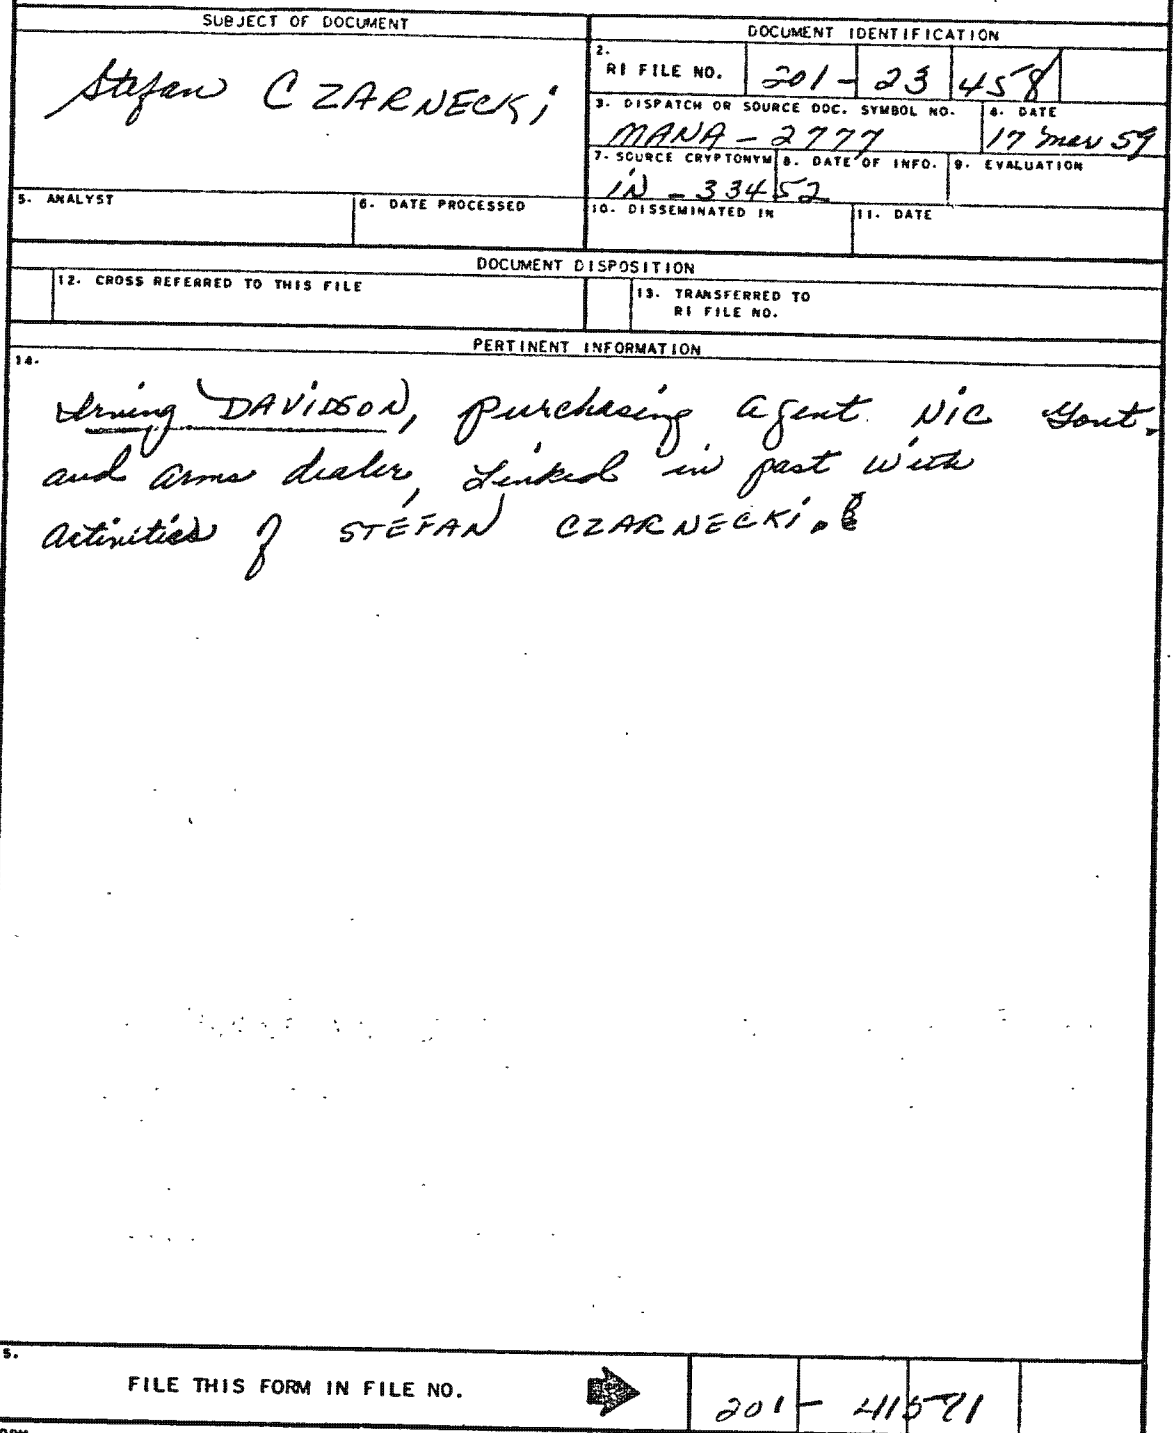 SUBJECT OF DOCUMENT
Stefan CZARNECKi
DOCUMENT IDENTIFICATION
2.
RI FILE NO. 201- 23 458
3. DISPATCH OR SOURCE DOC. SYMBOL NO. 4. DATE
MANA-2777 17 Mar 59
7. SOURCE CRYPTONYM 8. DATE OF INFO. 9. EVALUATION
iN-33452
5. ANALYST 6. DATE PROCESSED 10. DISSEMINATED IN 11. DATE
DOCUMENT DISPOSITION
12. CROSS REFERRED TO THIS FILE 13. TRANSFERRED TO
RI FILE NO.
PERTINENT INFORMATION
14.
Irving DAViDSON, purchasing Agent NiC Govt.
and arms dealer, Linked in past with
activities of STEFAN CZARNECKi.
5.
FILE THIS FORM IN FILE NO. 201- 41581